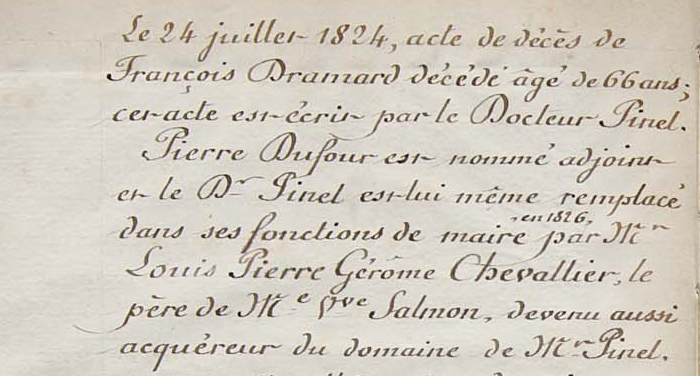 Le 24 juillet 1824, acte de décès de
François Dramard décédé âgé de 66 ans;
cet acte est écrit par le Docteur Pinel.
Pierre Dufour est nommé adjoint
et le Dr Pinel est lui même remplacé
en 1826,
dans ses fonctions de maire par Mr
Louis Pierre Gérôme Chevallier, le
père de Me Vve Salmon, devenu aussi
acquéreur du domaine de Mr Pinel.